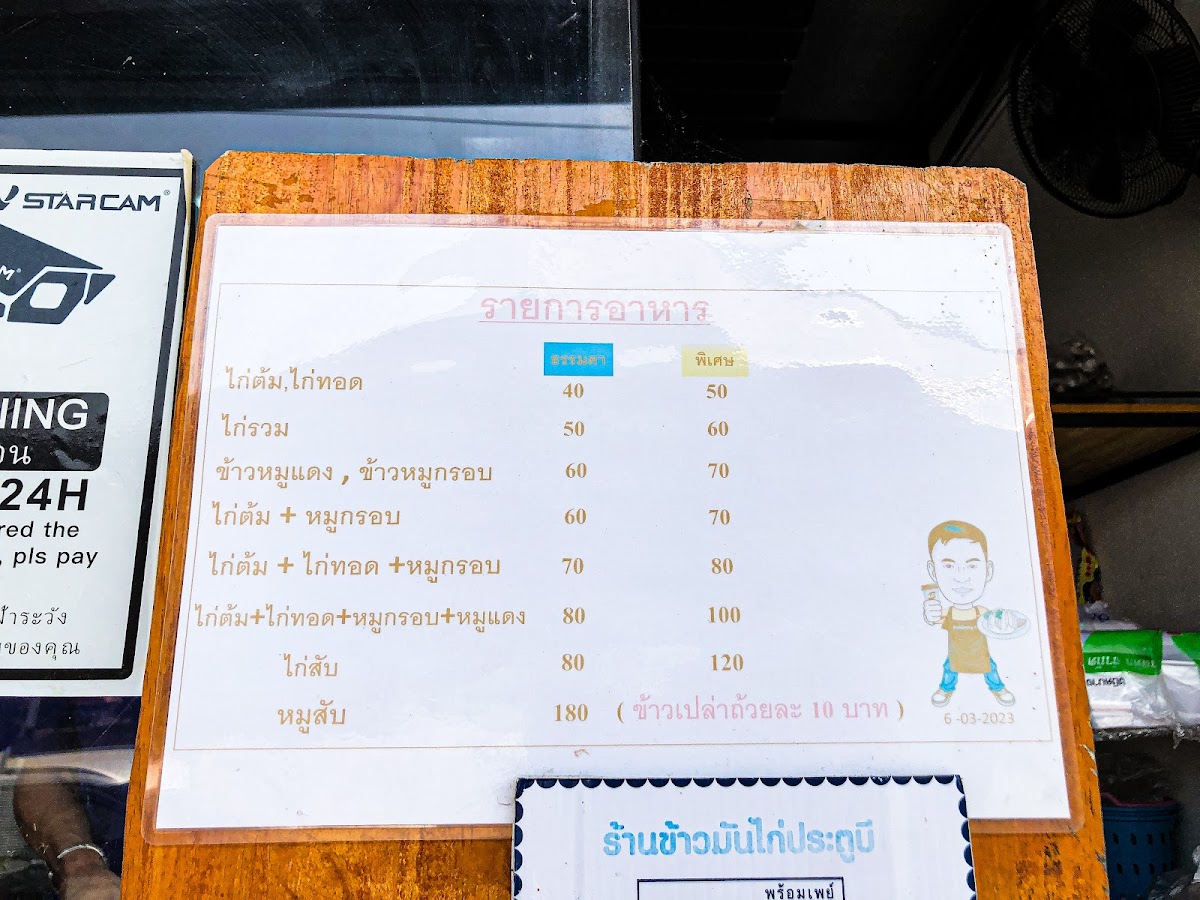 STARCAM®
NING
24H
red the
, pls pay
รายการอาหาร
ธรรมดา พิเศษ
ไก่ต้ม,ไก่ทอด 40 50
ไก่รวม 50 60
ข้าวหมูแดง , ข้าวหมูกรอบ 60 70
ไก่ต้ม + หมูกรอบ 60 70
ไก่ต้ม + ไก่ทอด +หมูกรอบ 70 80
ไก่ต้ม+ไก่ทอด+หมูกรอบ+หมูแดง 80 100
ไก่สับ 80 120
หมูสับ 180 ( ข้าวเปล่าถ้วยละ 10 บาท )
6 -03-2023
ร้านข้าวมันไก่ประตูบี
พร้อมเพย์